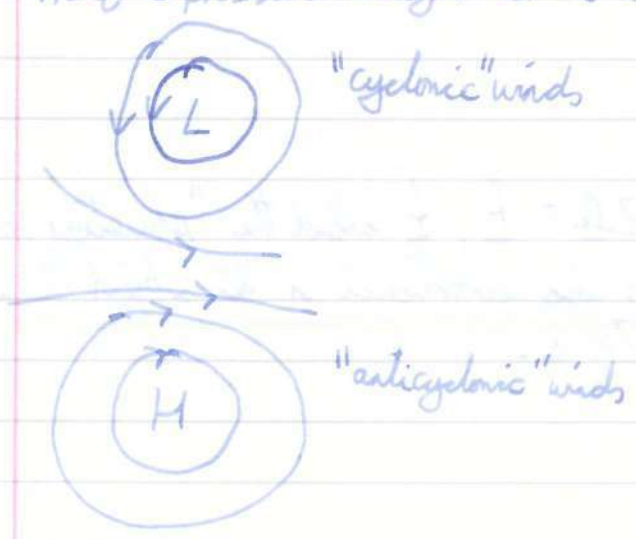 "cyclonic" winds
L
"anticyclonic" winds
H